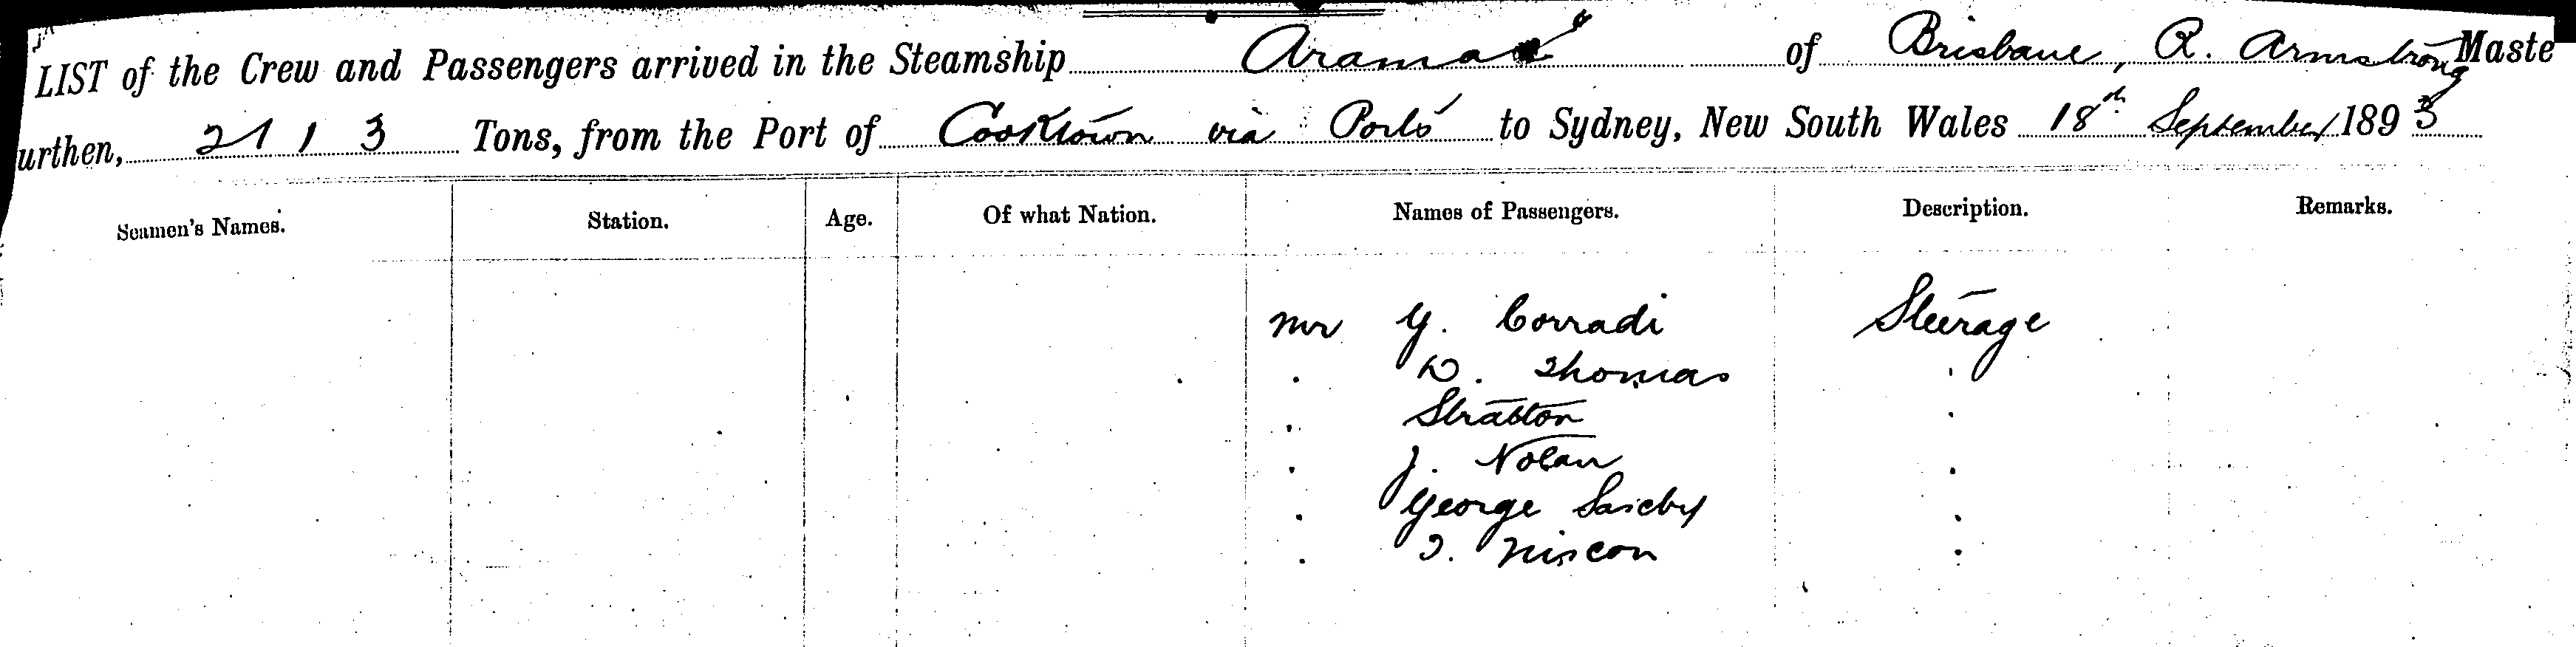 LIST of the Crew and Passengers arrived in the Steamship Aramac of Brisbane, R. Armstrong Maste
urthen, 2113 Tons, from the Port of Cooktown via Ports to Sydney, New South Wales 18th September 1893
Seamen's Names. Station. Age. Of what Nation. Names of Passengers. Description. Remarks.
Mr G. Corradi Steerage
. D. Thomas .
. Stratton .
. J. Nolan .
. George .
. .